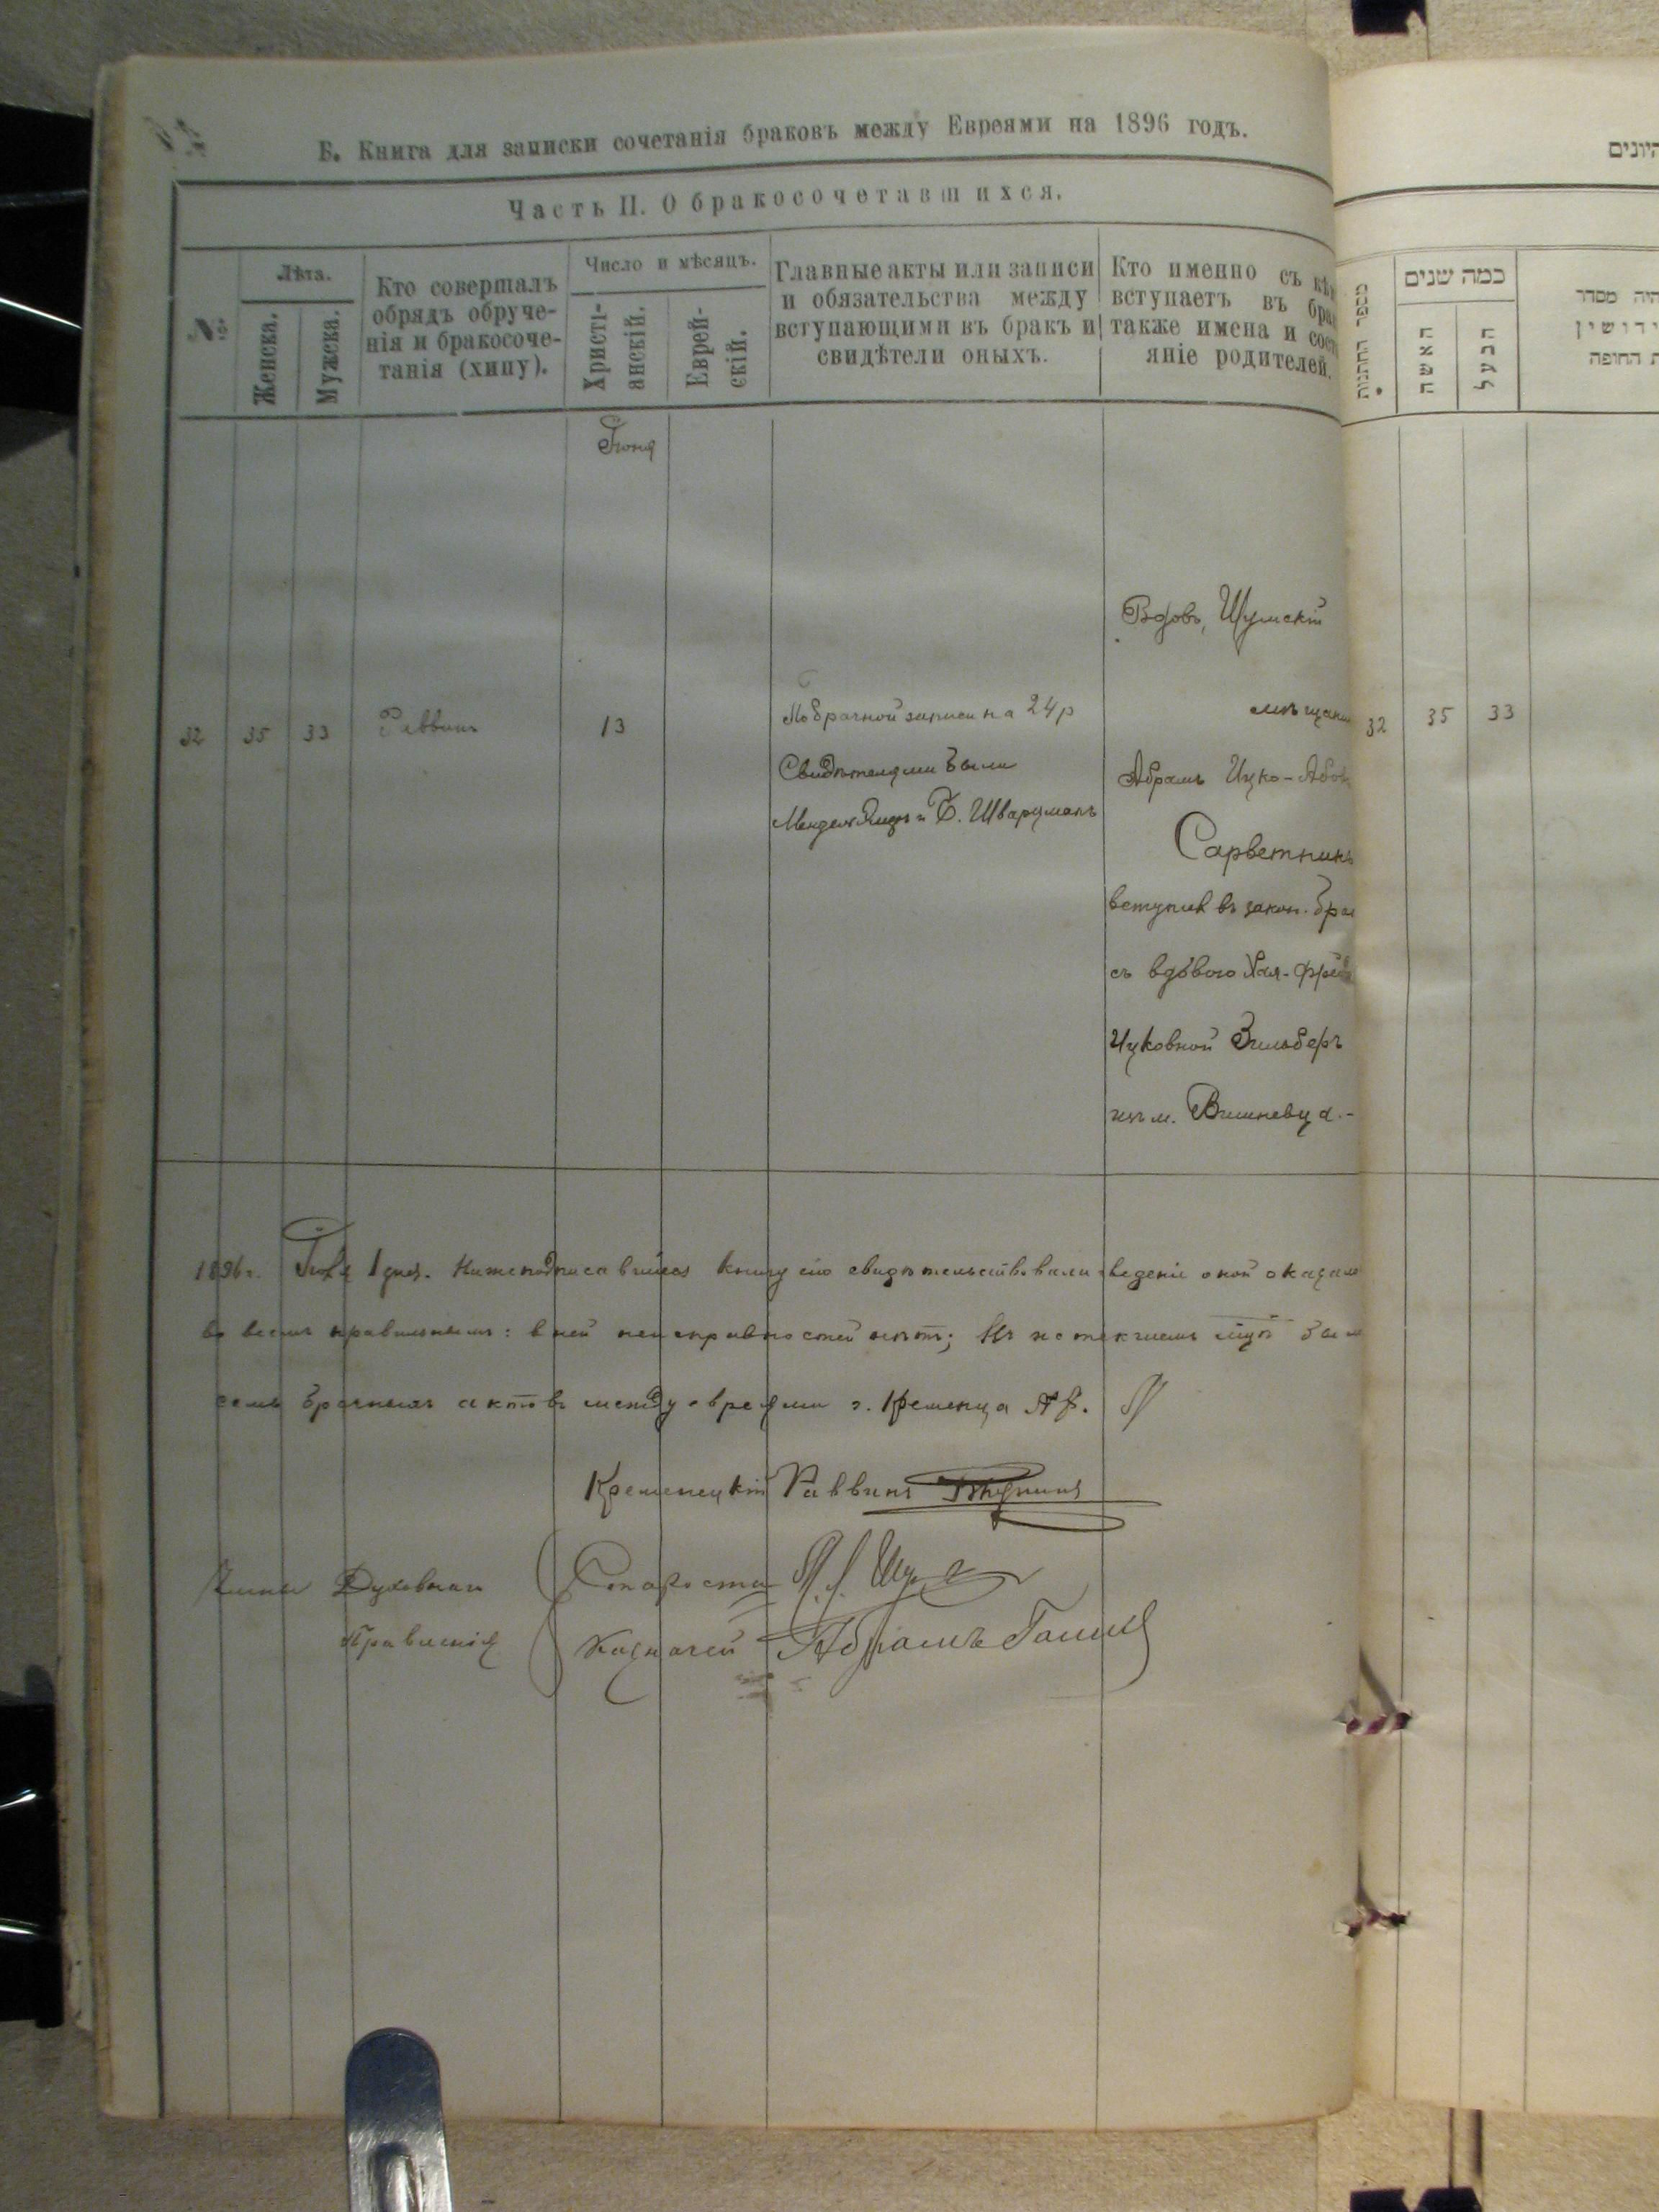 Б. Книга для записки сочетанія браковъ между Евреями на 1896 годъ.
Часть II. О бракосочетавшихся.
№
Лѣта.
Женска.
Мужска.
Кто совершалъ
обрядъ обруче-
нія и бракосоче-
танія (хипу).
Число и мѣсяцъ.
Христі-
анскій.
Еврей-
скій.
Главные акты или записи
и обязательства между
вступающими въ бракъ и
свидѣтели оныхъ.
Кто именно съ кѣ
вступаетъ въ бра
также имена и сос
яніе родителей.
Іюня
32 35 33 Раввинъ 13
По брачной записи на 24 р
Свидѣтелями были
Мендель и Б. Шварцманъ
Вдовъ, Шумскій
мѣщани
Абрамъ Ицко-Абов
Сарветникъ
вступилъ въ закон. бра
съ вдовою Хая-Фрей
Ицковной Зильберъ
изъ м. Вишневца.-
1896 г. Іюля 1 дня. Нижеподписавшіеся книгу сію свидѣтельствовали веденіе оной оказало
во всемъ правильнымъ: в ней неисправностей нѣтъ; Въ истекшемъ мцѣ было
семь брачныхъ актовъ между евреями г. Кременца
Кременецкій Раввинъ
Члены Духовнаго
Правленія
Староста
Казначей Абрамъ
היונים
מספר החתונות
כמה שנים
האשה
הבעל
היה מסדר
ידושין
ת החופה
32 35 33